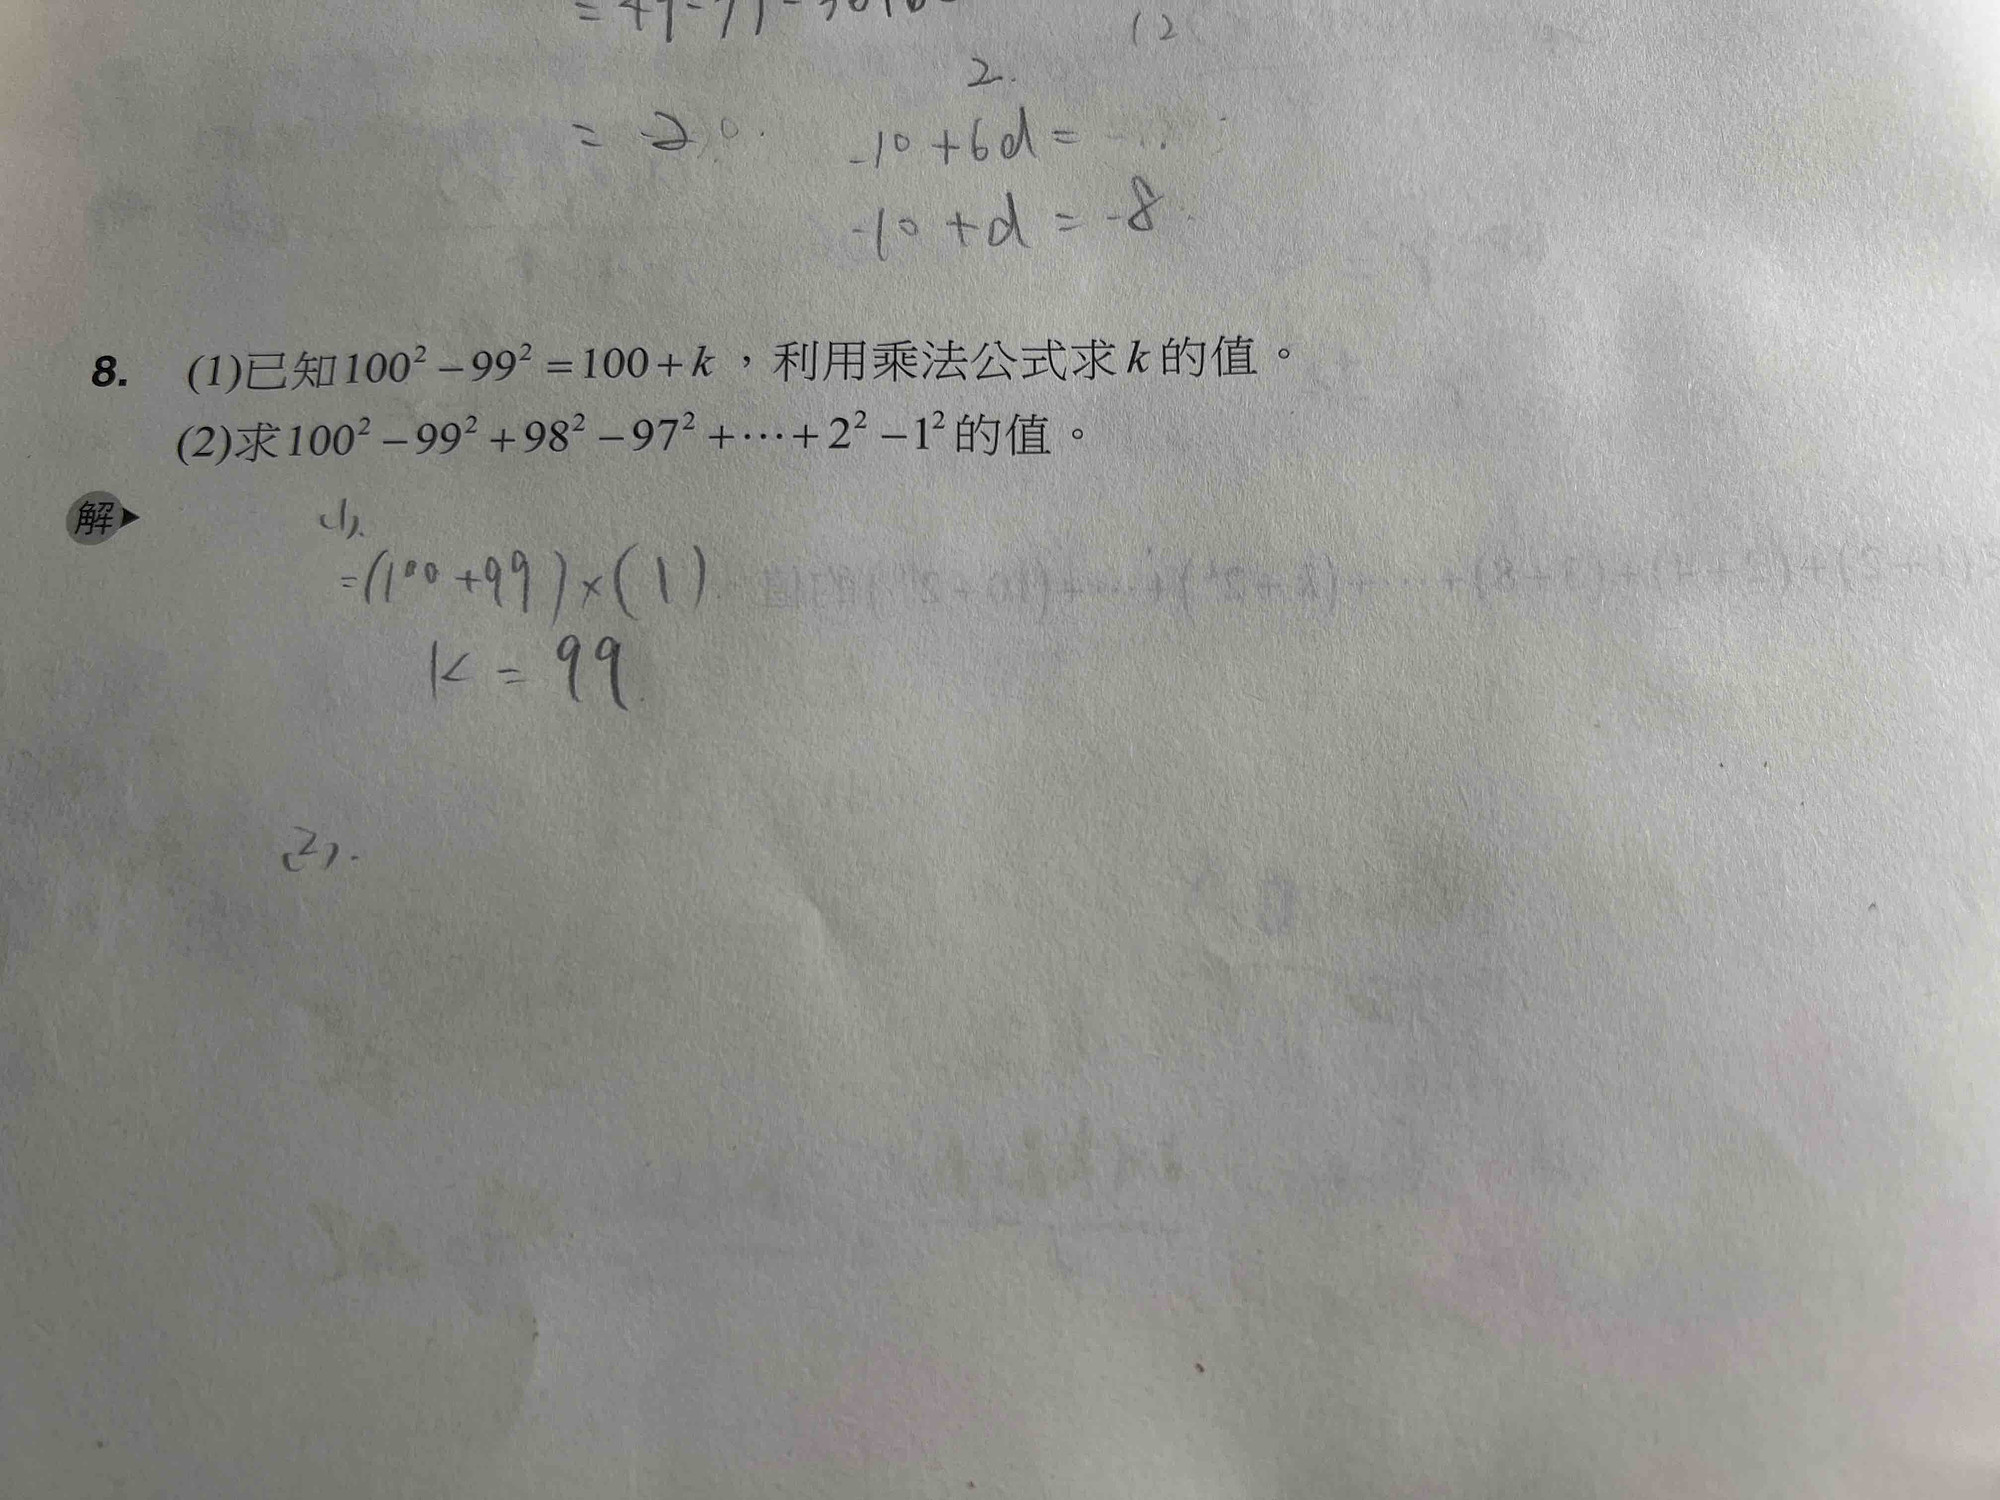 (2
2.
= -20.
-10+6d=
-10+d=-8
8. (1)已知100²-99²=100+k,利用乘法公式求k的值。
(2)求100²-99²+98²-97²+⋯+2²-1²的值。
解▶
(1).
=(100+99)×(1)
k=99
(2).